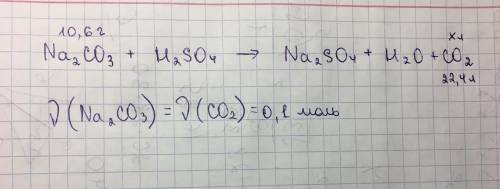 10,6 г x л
Na₂CO₃ + H₂SO₄ → Na₂SO₄ + H₂O + CO₂
22,4 л
ν(Na₂CO₃) = ν(CO₂) = 0,1 моль